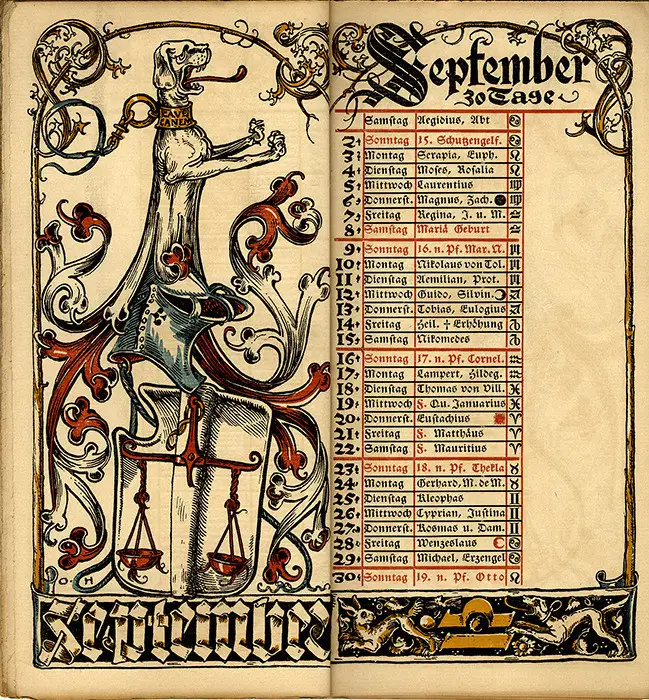 CAVE
CANEM
O H
September
September
30 Tage
Samstag Aegidius, Abt
2 Sonntag 15. Schutzengelf.
3 Montag Serapia, Euph.
4 Dienstag Moses, Rosalia
5 Mittwoch Laurentius
6 Donnerst. Magnus, Zach.
7 Freitag Regina, J. u. M.
8 Samstag Mariä Geburt
9 Sonntag 16. n. Pf. Mar. N.
10 Montag Nikolaus von Tol.
11 Dienstag Aemilian, Prot.
12 Mittwoch Guido, Silvin.
13 Donnerst. Tobias, Eulogius
14 Freitag Heil. † Erhöhung
15 Samstag Nikomedes
16 Sonntag 17. n. Pf. Cornel.
17 Montag Lampert, Hildeg.
18 Dienstag Thomas von Vill.
19 Mittwoch F. Qu. Januarius
20 Donnerst. Eustachius
21 Freitag F. Matthäus
22 Samstag F. Mauritius
23 Sonntag 18. n. Pf. Thekla
24 Montag Gerhard, M. de M.
25 Dienstag Kleophas
26 Mittwoch Cyprian, Justina
27 Donnerst. Kosmas u. Dam.
28 Freitag Wenzeslaus
29 Samstag Michael, Erzengel
30 Sonntag 19. n. Pf. Otto